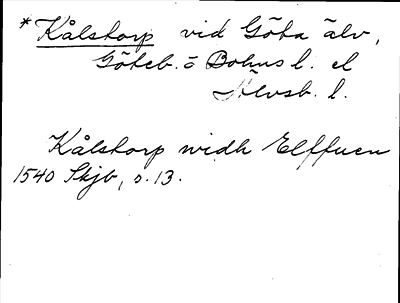 *Kålstorp vid Göta älv,
Göteb. o Bohus l. el
Älvsb. l.
Kålstorp widh Elffuen
1540 Skjb, s. 13.